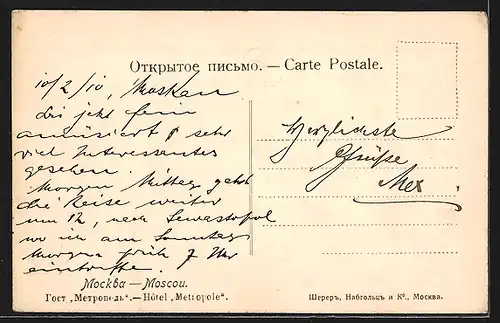 Открытое письмо. — Carte Postale.
10/2/10, Moskau.
bis jetzt fein
amüsiert & sehr
viel Interessantes
gesehen.
Morgen Mittag geht
die Reise weiter
um 12, nach Sewastopol
wo ich am Sonntag
Morgen früh 7 Uhr
eintreffe.
Herzlichste
Grüße
Max
Москва — Moscou.
Гост „Метрополь“. — Hôtel „Metropole“.
Шереръ, Набгольцъ и Ко., Москва.